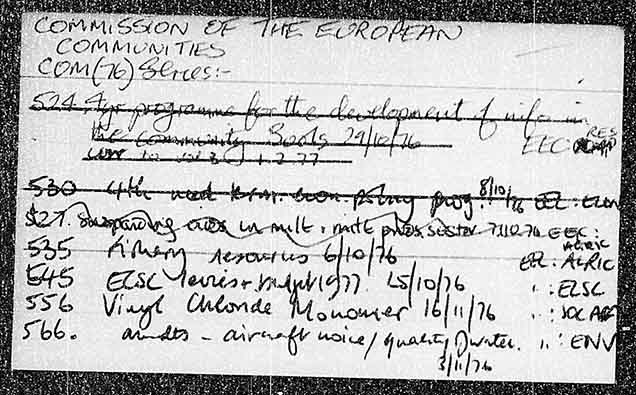 COMMISSION OF THE EUROPEAN
COMMUNITIES
COM(76) Series:-
524 4yr programme for the development of info in
the community 29/10/76 EEC RES
530 4th med term econ. policy prog. 8/10/76 EEC
527. Suspending aids in milk & milk prods sector 7.10.76 EEC:
AGRIC
535 Fishery resources 6/10/76 EEC: AGRIC
545 ECSC levies + budget 1977. 25/10/76 " : ECSC
556 Vinyl Chloride Monomer 16/11/76 " : SOC AFF
566. amdts - aircraft noise / quality of water. " : ENV
3/11/76